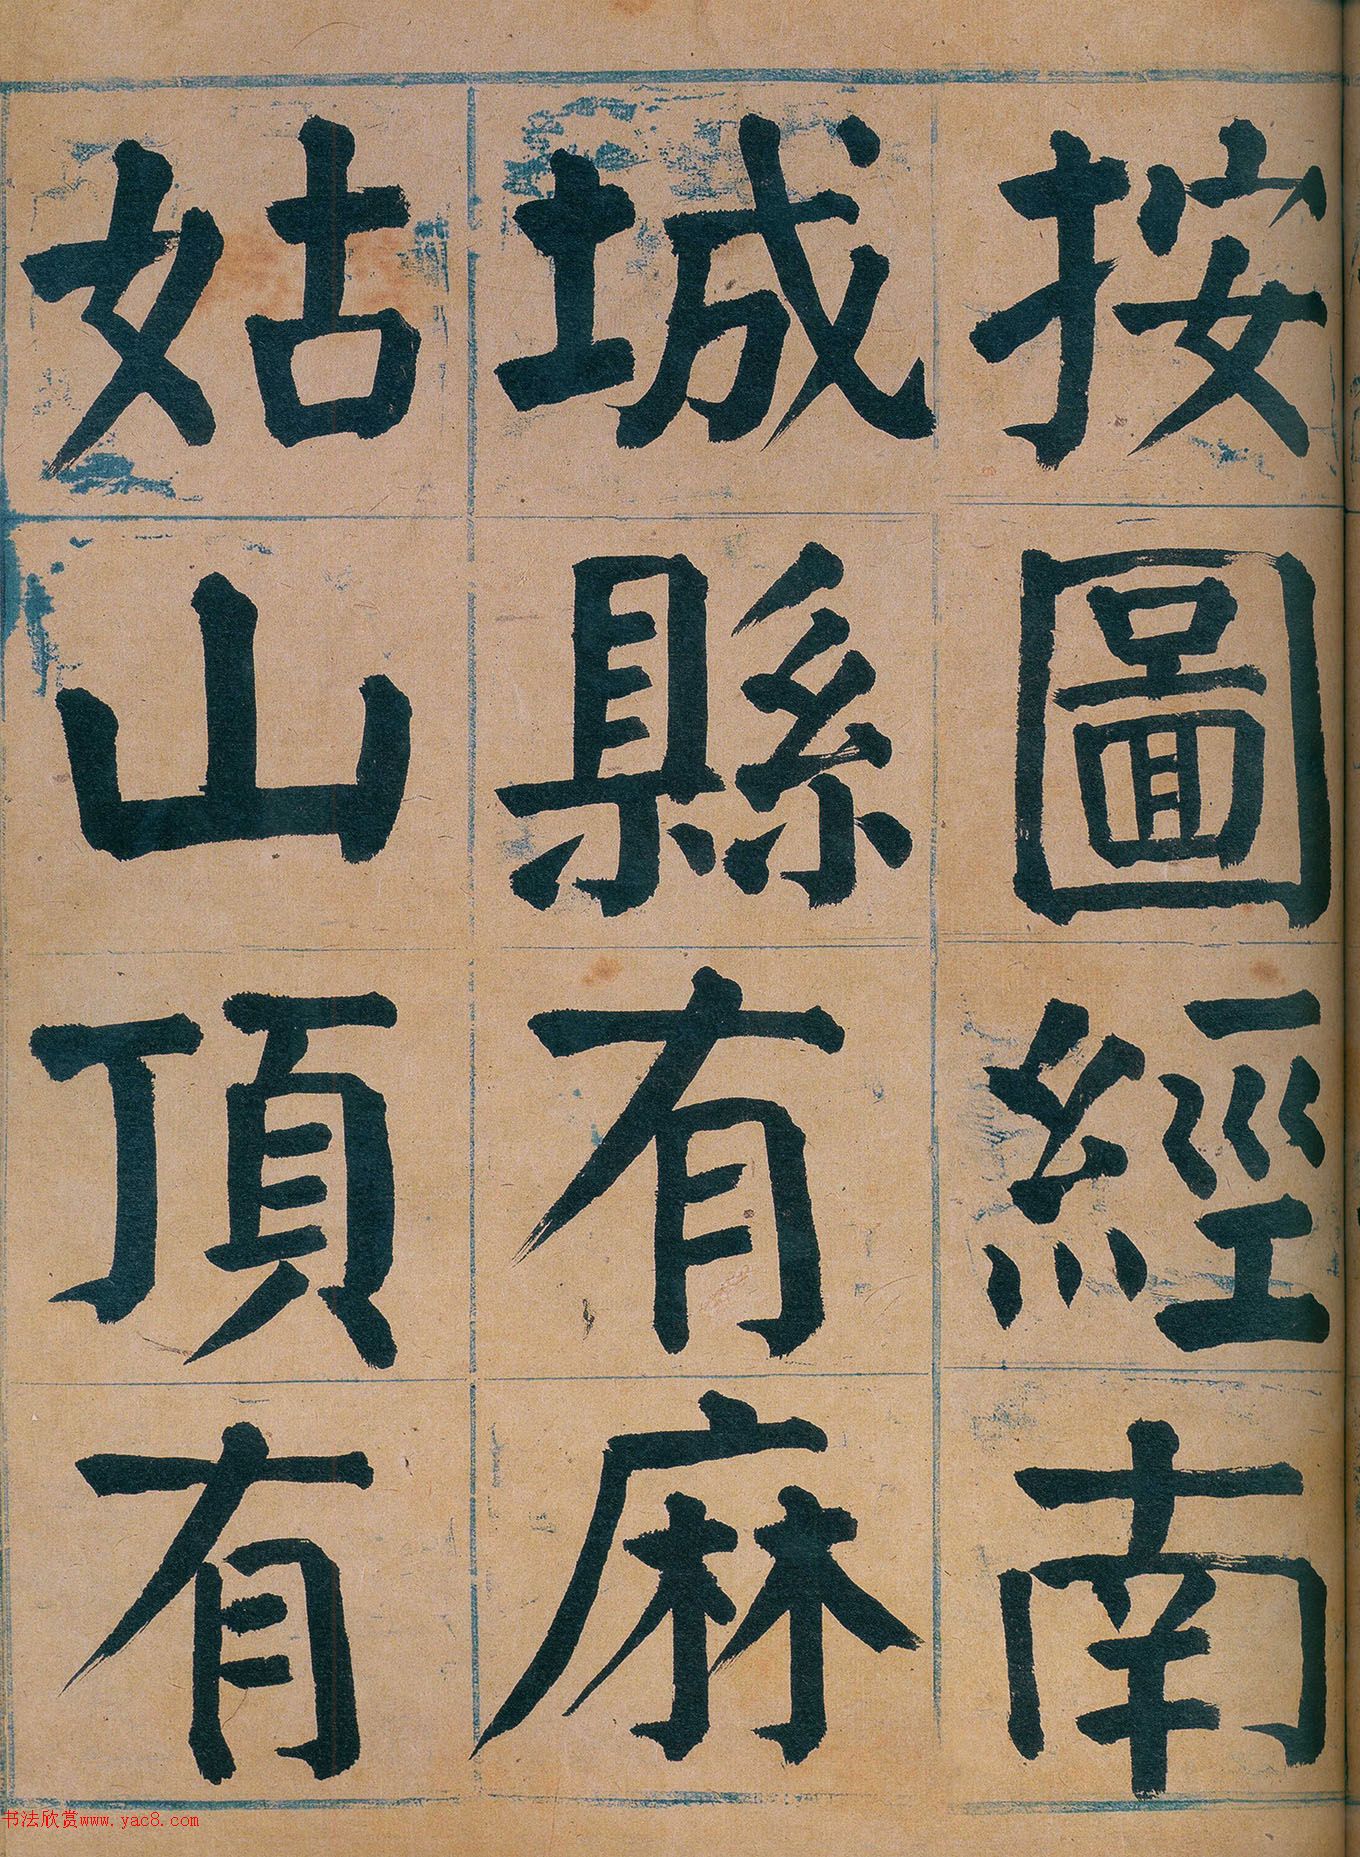 按圖經南
城縣有麻
姑山頂有
书法欣赏www.yac8.com